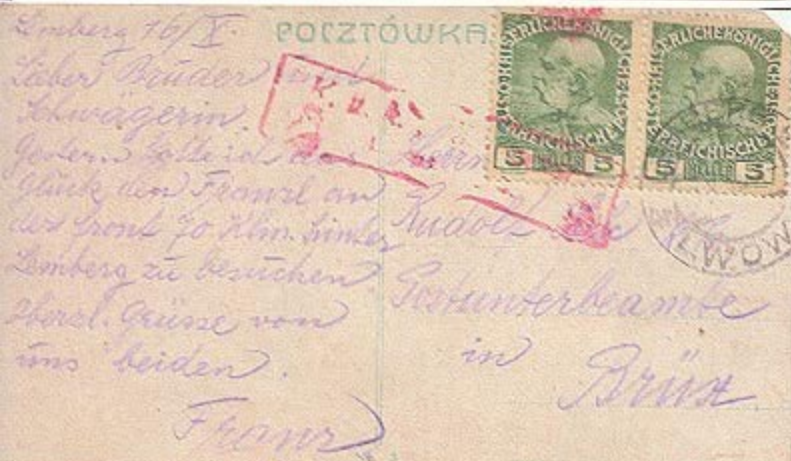 POCZTÓWKA
Lemberg 16/X.
Lieber Bruder und
Schwägerin.
Gestern hatte ich das
Glück den Franzl an
der front 70 Klm. hinter
Lemberg zu besuchen.
Herzl. Grüsse von
uns beiden.
Franz
K. u. k.
KAISERLICHE KÖNIGLICHE ÖSTERREICHISCHE POST
5 HELLER 5
KAISERLICHE KÖNIGLICHE ÖSTERREICHISCHE POST
5 HELLER 5
LWÓW
Herrn
Rudolf
Postunterbeamte
in
Brüx